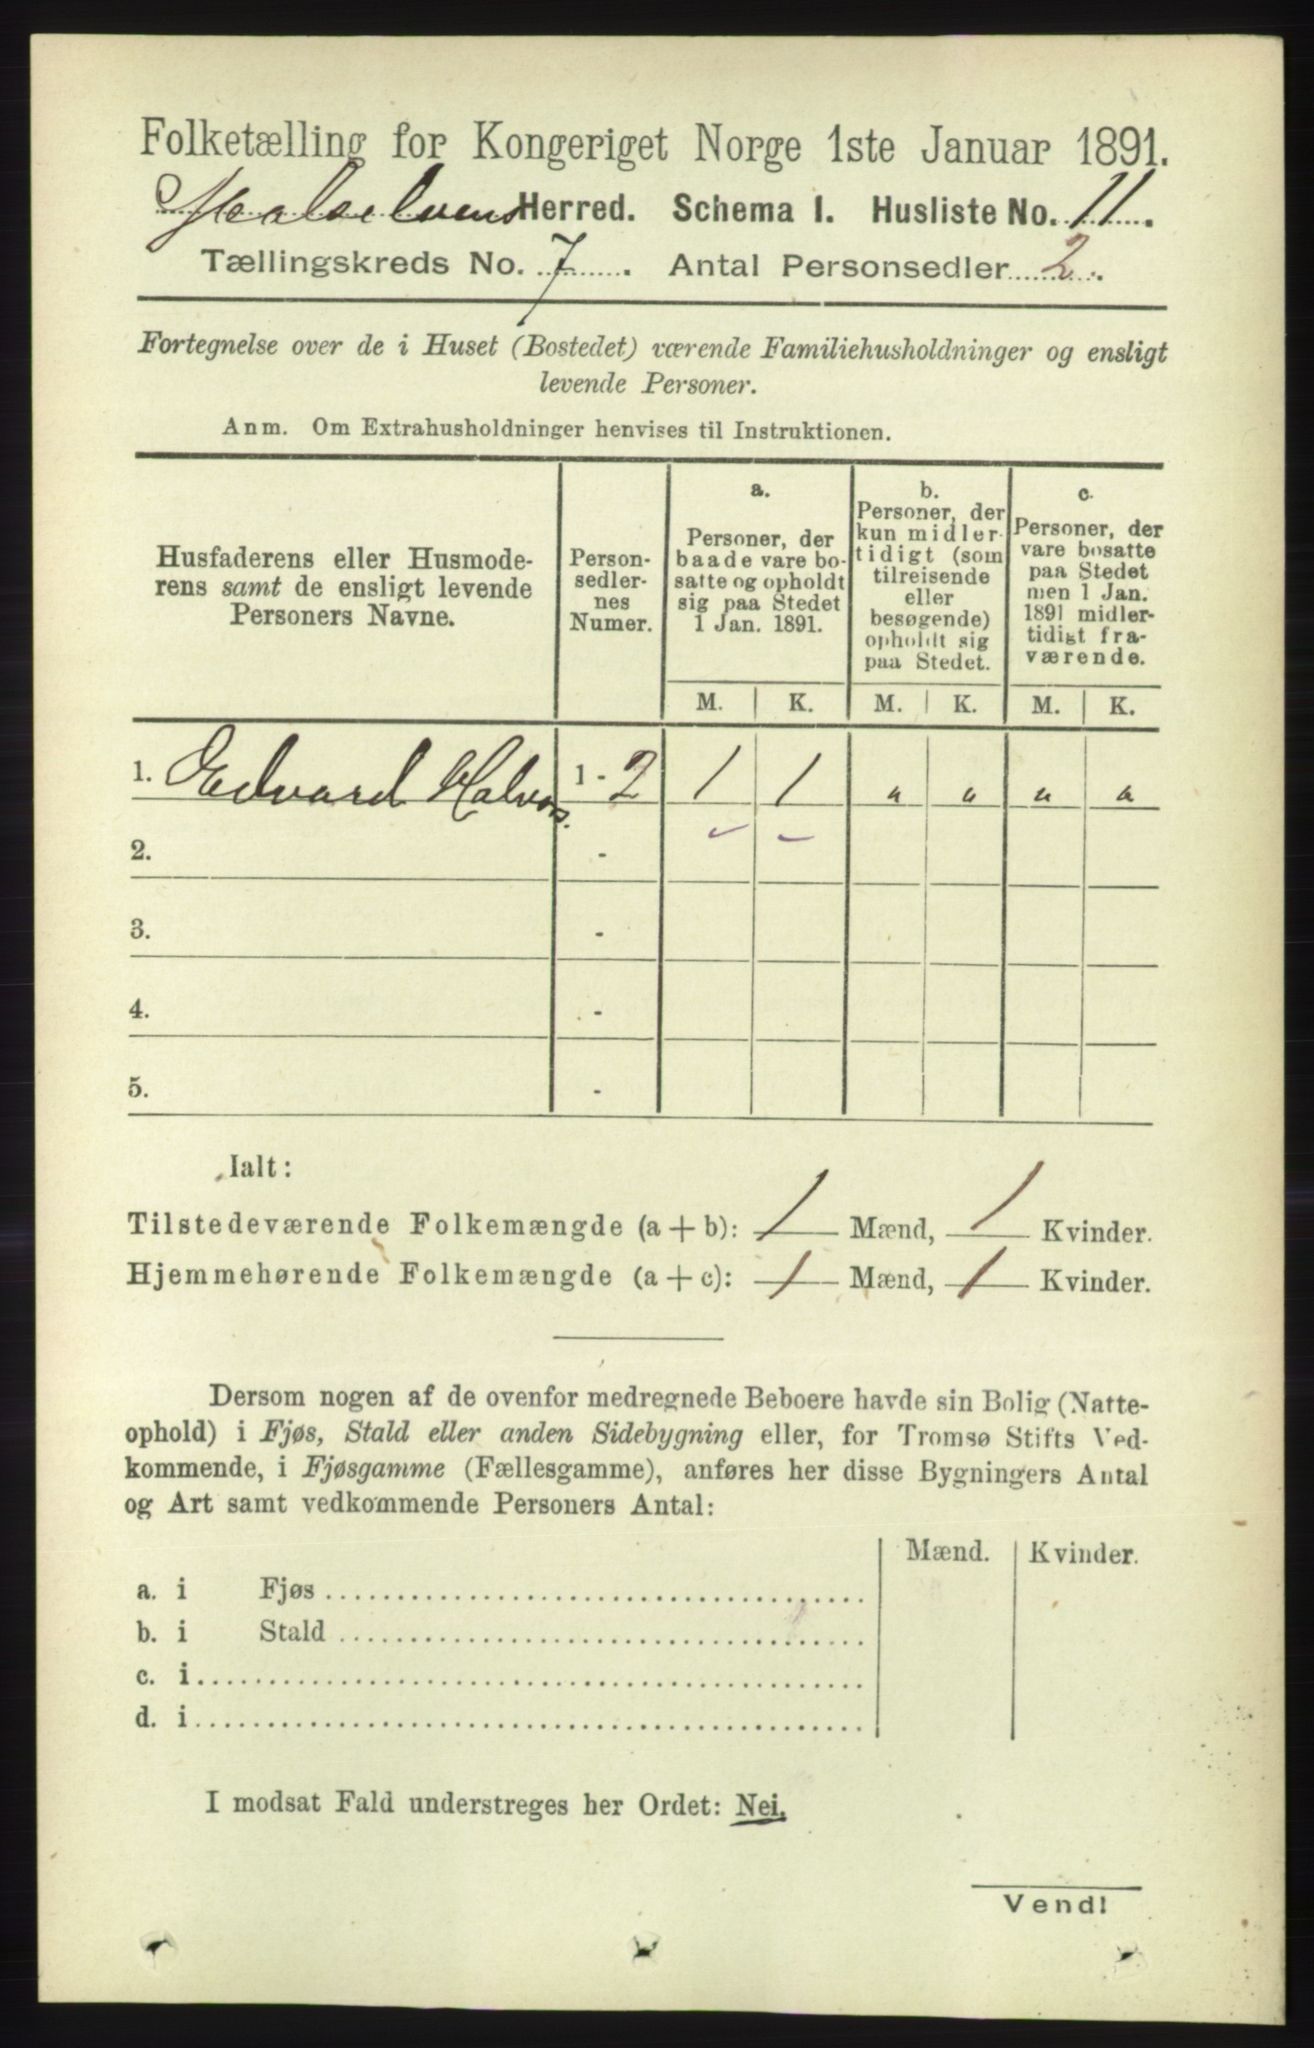 Folketælling for Kongeriget Norge 1ste Januar 1891.
Maalselvens Herred. Schema I. Husliste No. 11.
Tællingskreds No. 7. Antal Personsedler 2.
Fortegnelse over de i Huset (Bostedet) værende Familiehusholdninger og ensligt
levende Personer.
Anm. Om Extrahusholdninger henvises til Instruktionen.
Husfaderens eller Husmode-
rens samt de ensligt levende
Personers Navne.
Person-
sedler-
nes
Numer.
a.
Personer, der
baade vare bo-
satte og opholdt
sig paa Stedet
1 Jan. 1891.
b.
Personer, der
kun midler-
tidigt (som
tilreisende
eller
besøgende)
opholdt sig
paa Stedet.
c.
Personer, der
vare bosatte
paa Stedet
men 1 Jan.
1891 midler-
tidigt fra-
værende.
M. K. M. K. M. K.
1. Edvard Halvors. 1 - 2 1 1 " " " "
2. -
3. -
4. -
5. -
Ialt:
Tilstedeværende Folkemængde (a + b): 1 Mænd, 1 Kvinder.
Hjemmehørende Folkemængde (a + c): 1 Mænd, 1 Kvinder.
Dersom nogen af de ovenfor medregnede Beboere havde sin Bolig (Natte-
ophold) i Fjøs, Stald eller anden Sidebygning eller, for Tromsø Stifts Ved-
kommende, i Fjøsgamme (Fællesgamme), anføres her disse Bygningers Antal
og Art samt vedkommende Personers Antal:
Mænd. Kvinder.
a. i Fjøs
b. i Stald
c. i
d. i
I modsat Fald understreges her Ordet: Nei.
Vend!